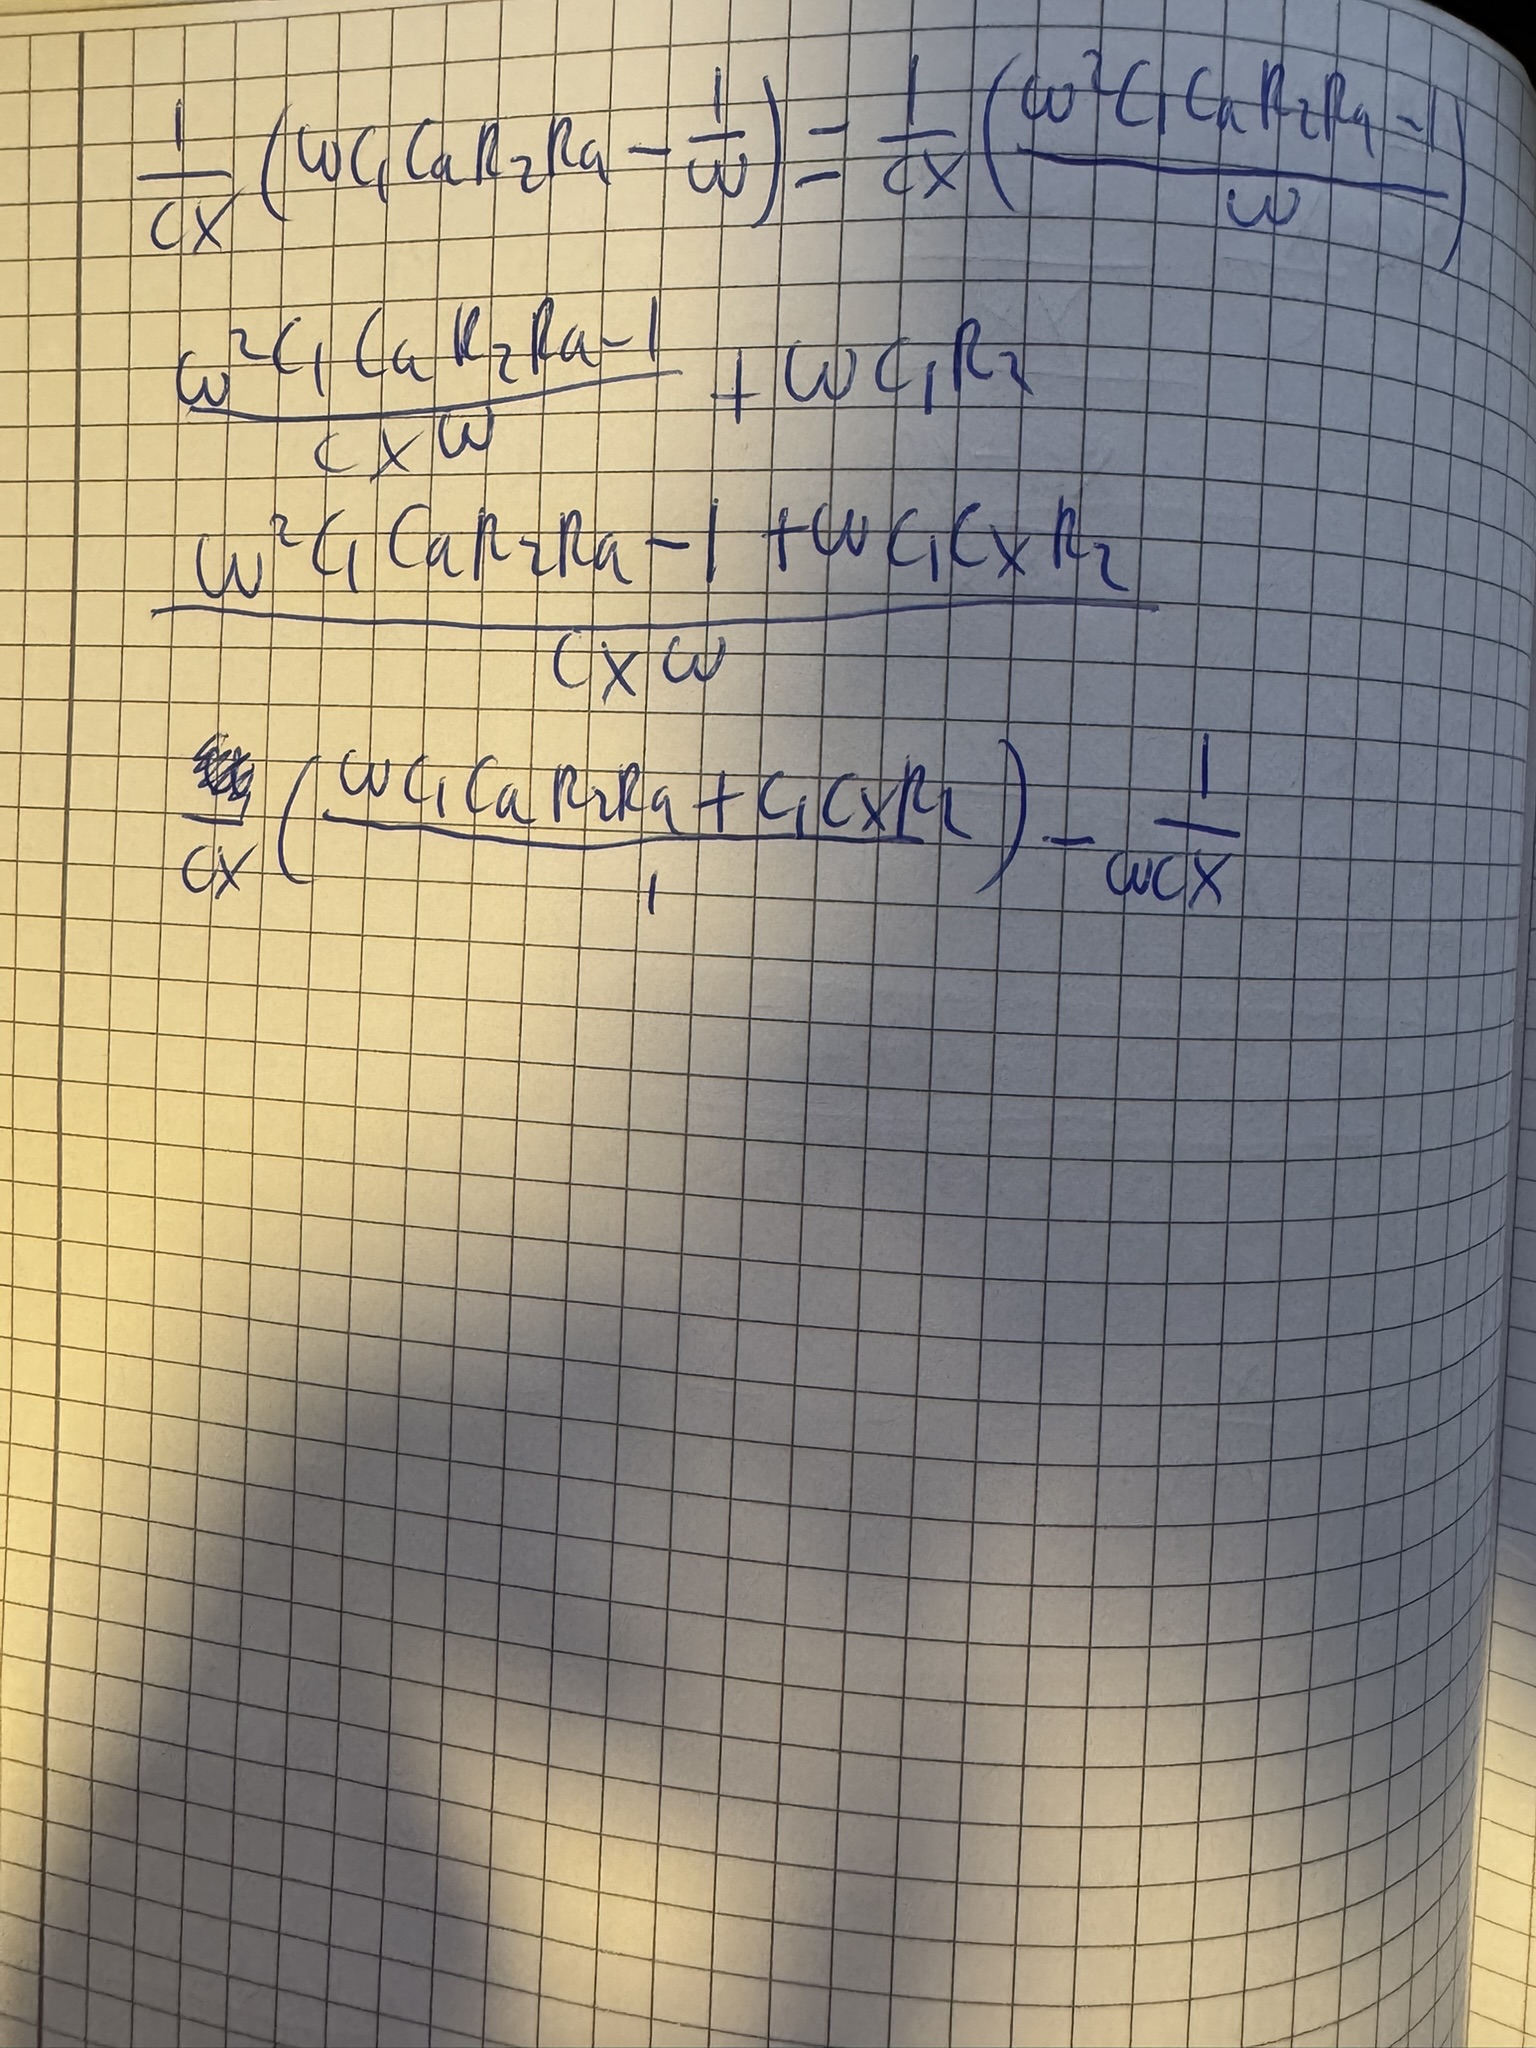 1/Cx (ωC₁CaR₂Ra − 1/ω) = 1/Cx ((ω²C₁CaR₂Ra − 1)/ω)
(ω²C₁CaR₂Ra − 1)/(Cxω) + ωC₁R₂
(ω²C₁CaR₂Ra − 1 + ωC₁CxR₂)/(Cxω)
/Cx ((ωC₁CaR₂Ra + C₁CxR₂)/1) − 1/(ωCx)